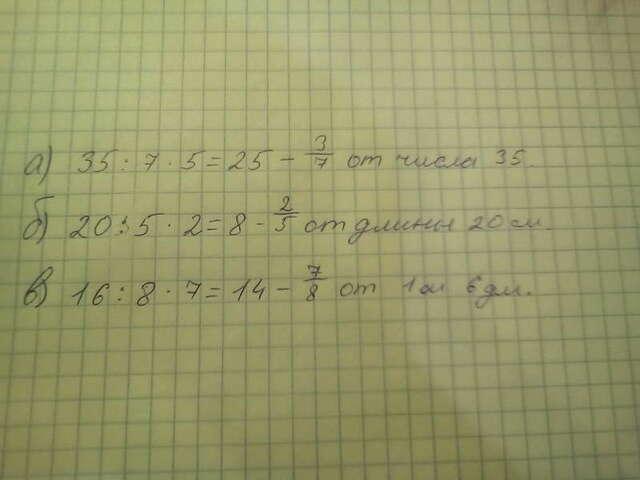 а) 35 : 7 · 5 = 25 – 3/7 от числа 35.
б) 20 : 5 · 2 = 8 – 2/5 от длины 20 см.
в) 16 : 8 · 7 = 14 – 7/8 от 1 м 6 дм.